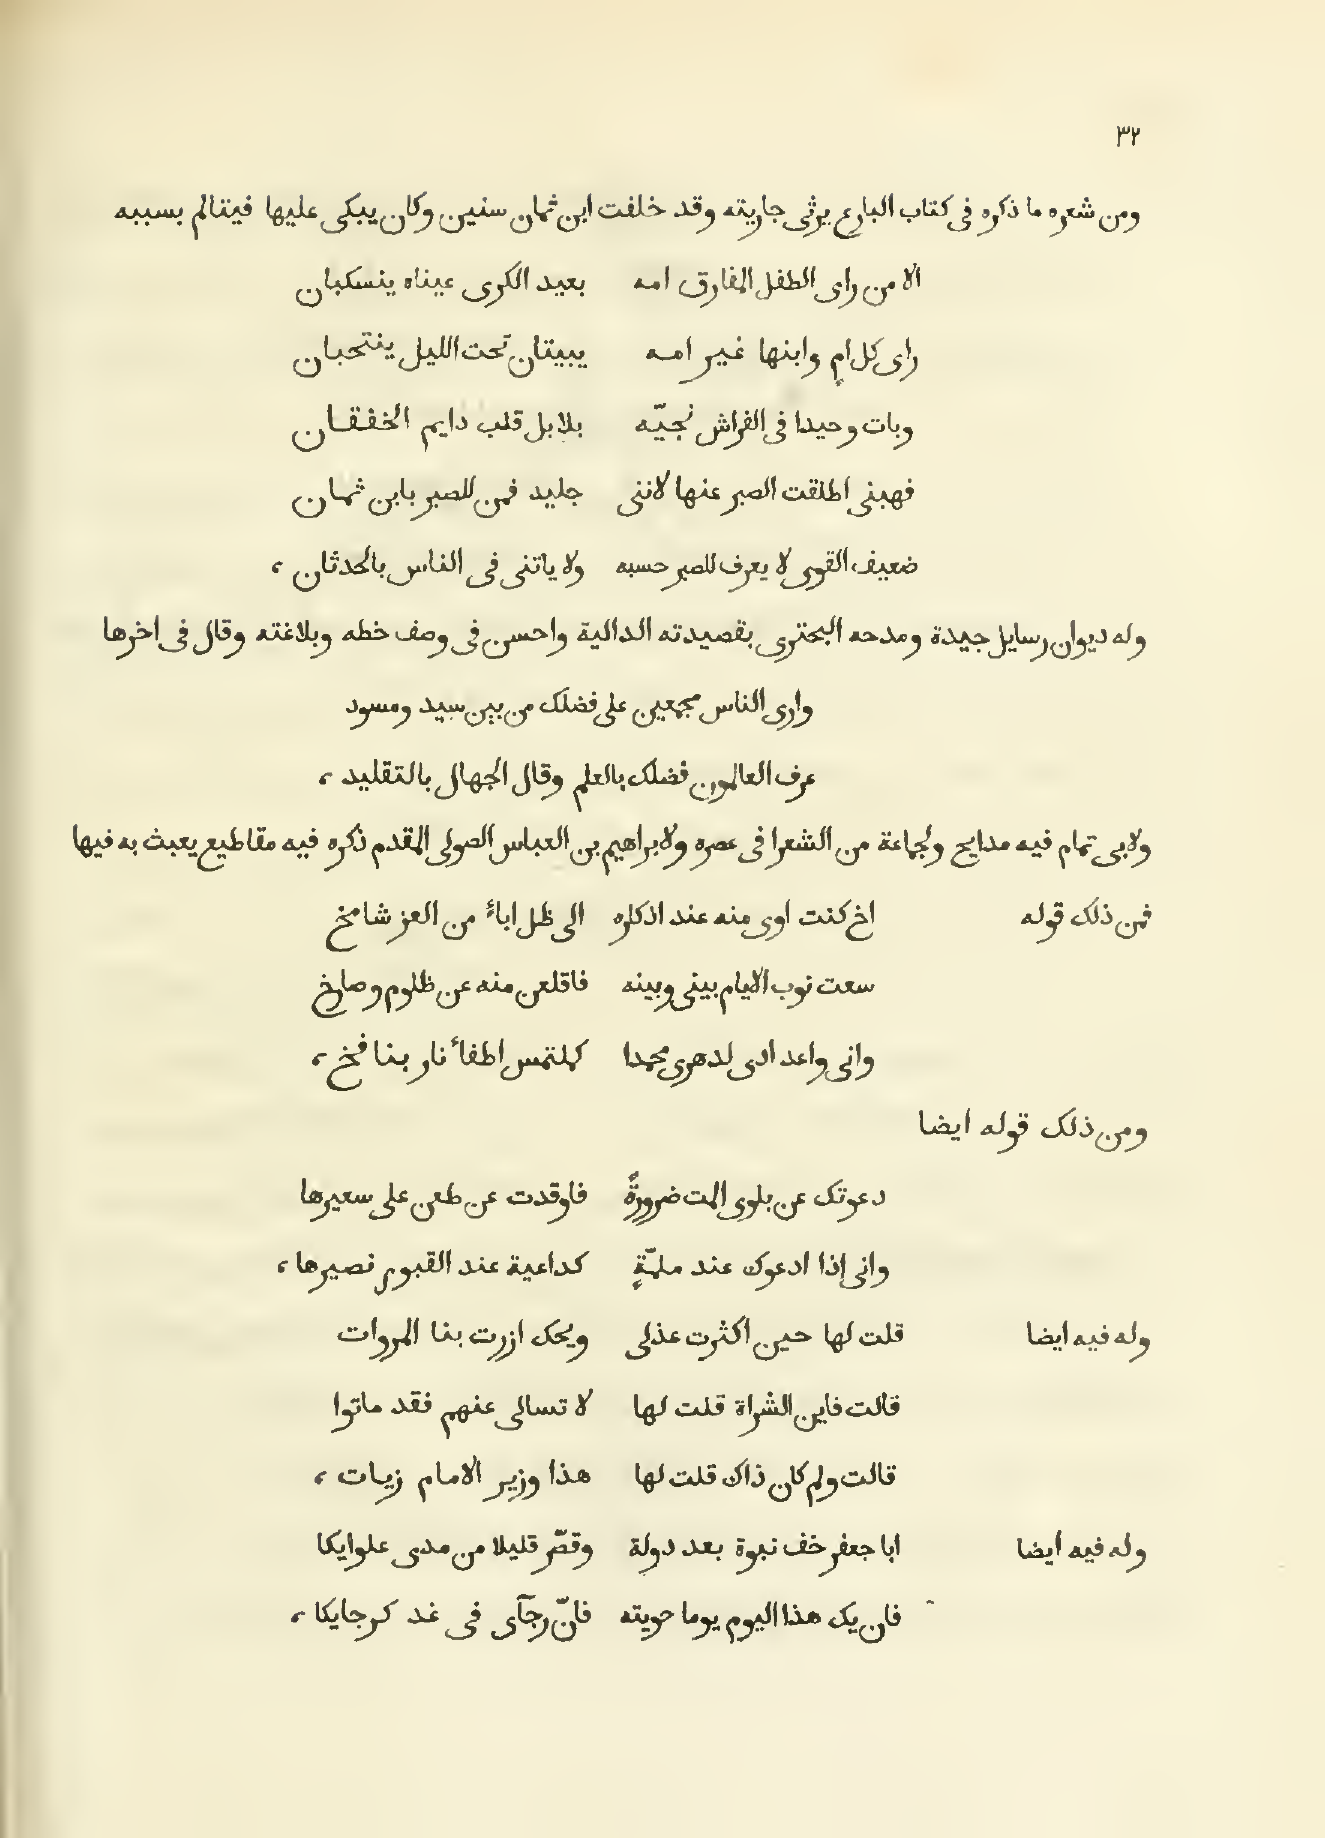 ٣٢
ومن شعره ما ذكره فى كتاب البارع يرثى جاريته وقد خلفت ابن ثمان سنين وكان يبكى عليها فيتالم بسببه
الا من راى الطفل المفارق امه بعيد الكرى عيناه ينسكبان
راى كل ام وابنها غير امه يبيتان تحت الليل ينتحبان
وبات وحيدا فى الفراش نجيّه بلابل قلب دايم الخفقان
فهبنى اطلقت الصبر عنها لاننى جليد فمن للصبر بابن ثمان
ضعيف القوى لا يعرف للصبر حسبه ولا ياتنى فى الناس بالحدثان ،
وله ديوان رسايل جيدة ومدحه البحترى بقصيدته الدالية واحسن فى وصف خطه وبلاغته وقال فى اخرها
وارى الناس مجمعين على فضلك من بين سيد ومسود
عرف العالمون فضلك بالعلم وقال الجهال بالتقليد ،
ولابى تمام فيه مدايح ولجماعة من الشعرا فى عصره ولابراهيم بن العباس الصولى المقدم ذكره فيه مقاطيع يعبث به فيها
فمن ذلك قوله اخ كنت اوى منه عند اذكاره الى ظل اباءٍ من العز شامخ
سعت نوب الايام بينى وبينه فاقلعن منه عن ظلوم وصارخ
وانى واعدادى لدهرى محمدا كملتمس اطفاء نار بنافخ ،
ومن ذلك قوله ايضا
دعوتك عن بلوى المت ضرورةً فاوقدت عن طعن على سعيرها
وانى إذا ادعوك عند ملمّةٍ كداعية عند القبور نصيرها ،
وله فيه ايضا قلت لها حين اكثرت عذلى ويحك ازرت بنا المروات
قالت فاين الشراة قلت لها لا تسالى عنهم فقد ماتوا
قالت ولم كان ذاك قلت لها هذا وزير الامام زيات ،
وله فيه أيضا ابا جعفر خف نبوة بعد دولة وقصّر قليلا من مدى علوايكا
فان يك هذا اليوم يوما حويته فانّ رجآى فى غد كرجايكا ،